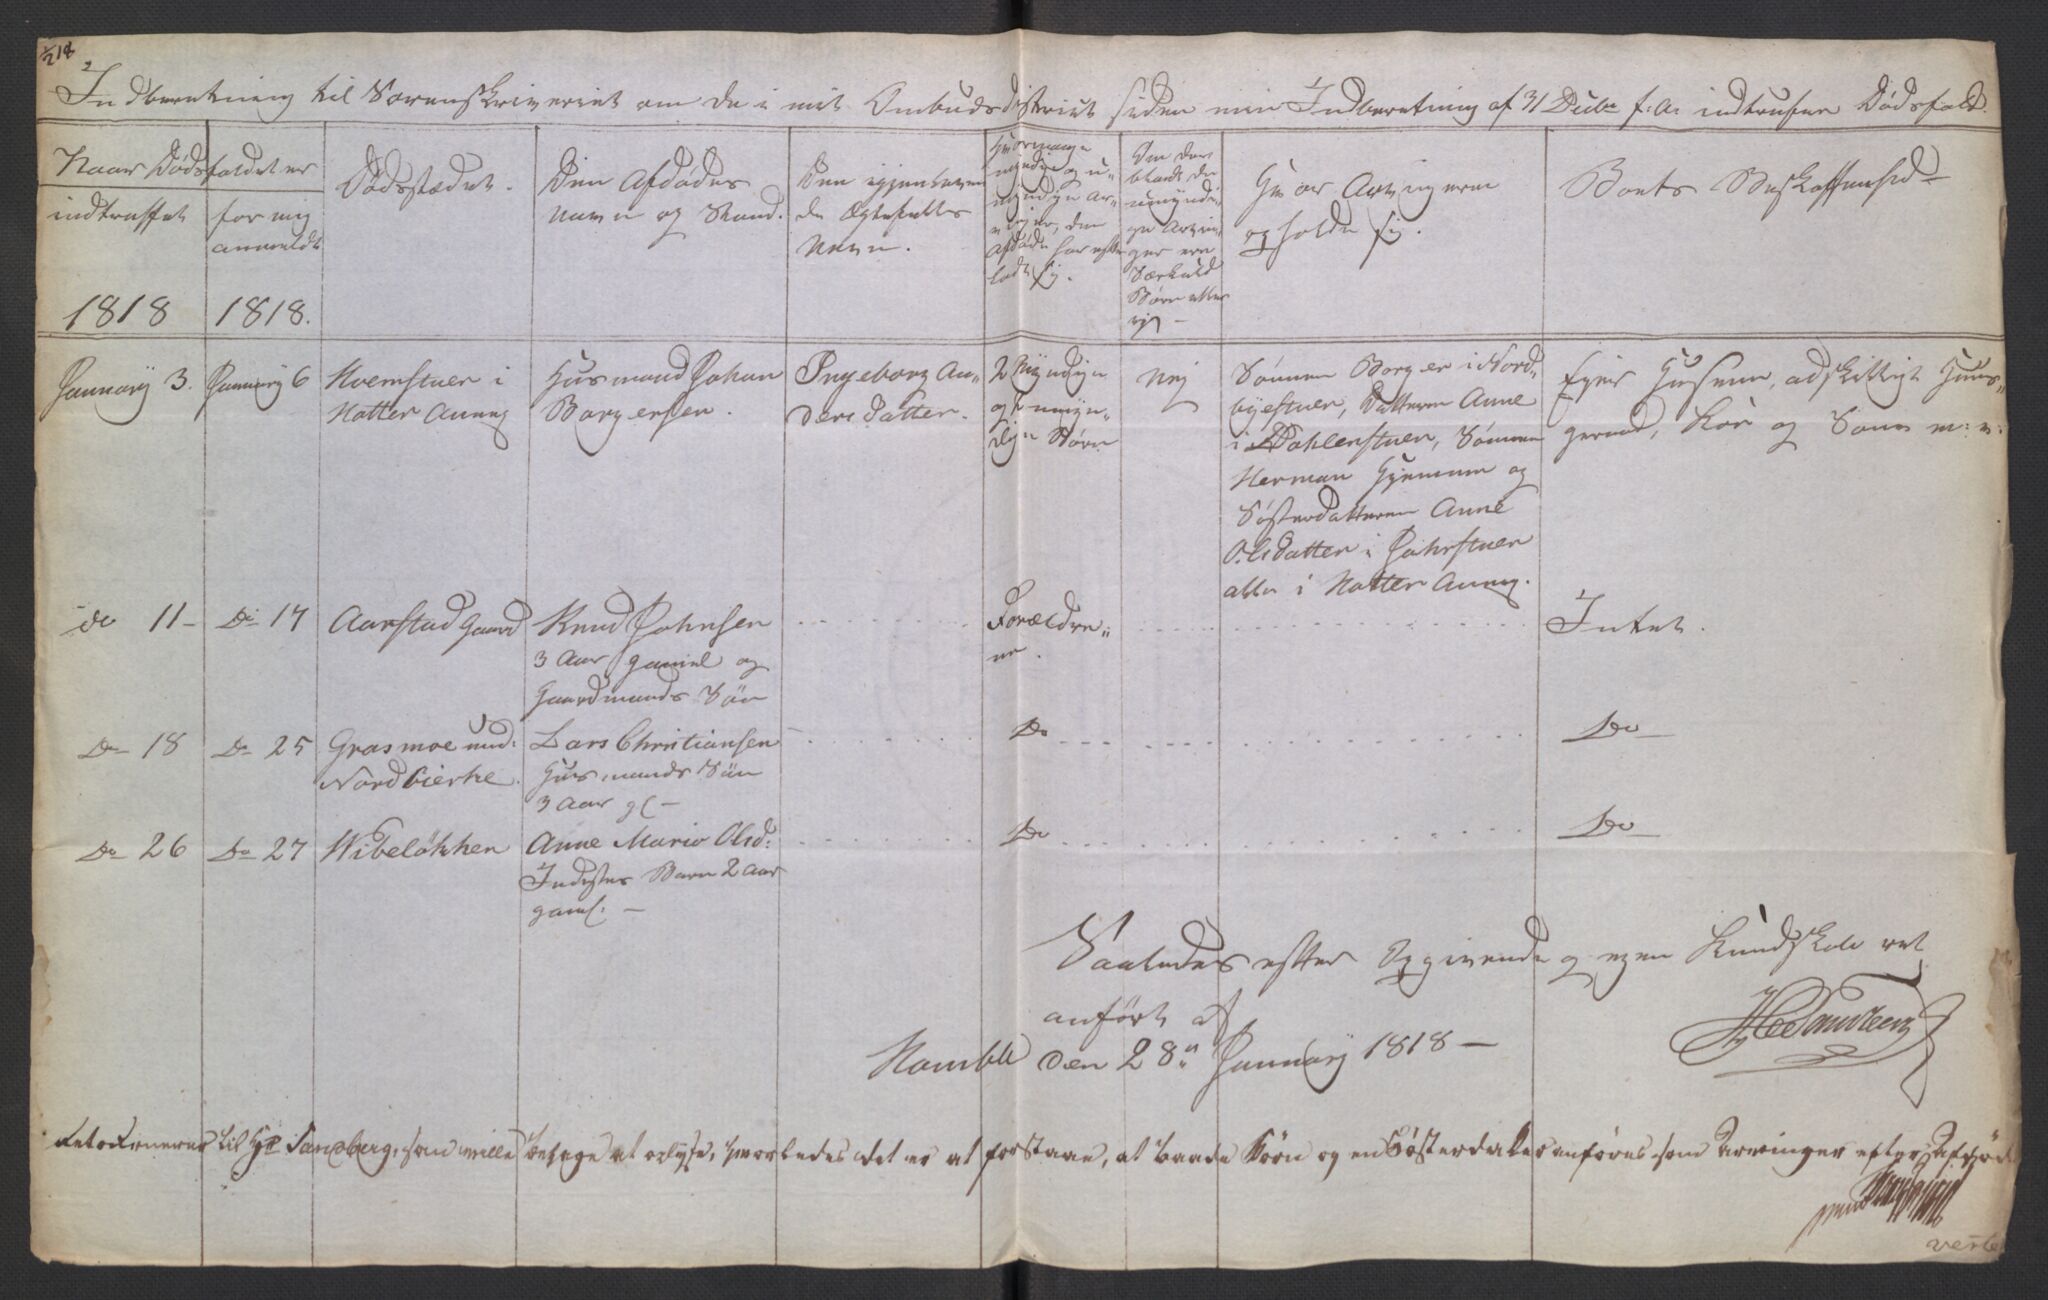 1/2 18
Indberetning til Sorenskriveriet om de i mit Ombudsdistrict siden min Indberetning af 31 Decbr f: A: indtrufne Dødsfald.
Naar Dødsfaldet er
indtruffet
for mig
anmeldt
1818
1818.
Dødsstædet.
Den Afdødes
Navn og Stand.
Den igjenleven
de Ægtefælles
Navn.
Hvormange
myndige og u-
myndige Ar-
vinger, den
Afdøde har efter
ladt sig.
Om der
blandt de
umyndi-
ge Arvin-
ger ere
Særkuld
Børn eller
ej
Hvor Arvingerne
opholde sig.
Boets Beskaffenhed
January 3.
January 6
Hvemstuen i
Hatter Anneg
Huusmand Johan
Borgersen.
Ingeborg An-
ders Datter.
2 Myndige
og umyn-
dige Børn
Nej
Sønnen Borger i Nord-
byestuen, Datteren Anne
i Dahlenstuen, Sønnen
Herman Hjemme og
Søsterdatteren Anne
Olsdatter i Jahrstuen
alle i Hatter Anneg.
Ejer Husene, adskilligt Huus-
geraad, Køer og Souer m: v:
do 11 -
Do 17
Aarstad Gaard
Knud Johnsen
3 Aar gamel og
Gaardmands Søn
Forældre-
ne.
Intet.
Do 18
Do 25
Grasmoe und:
Nordbierke.
Lars Christiansen
Huusmands Søn
3 Aar gl -
Do
Do
Do 26
Do 27
Wibeløkken
Anne Marie Olsd:
Inderstes Barn 2 Aar
gaml. -
Do
Do
Saaledes efter Opgivende og egen Kundskab ret
anført af
den 28n January 1818 -
Returneres til Hr Sandberg, som ville behage at oplyse, hvorledes det er at forstaae, at baade Børn og en Søsterdatter anføres som Arvinger efter Afdøde
verte